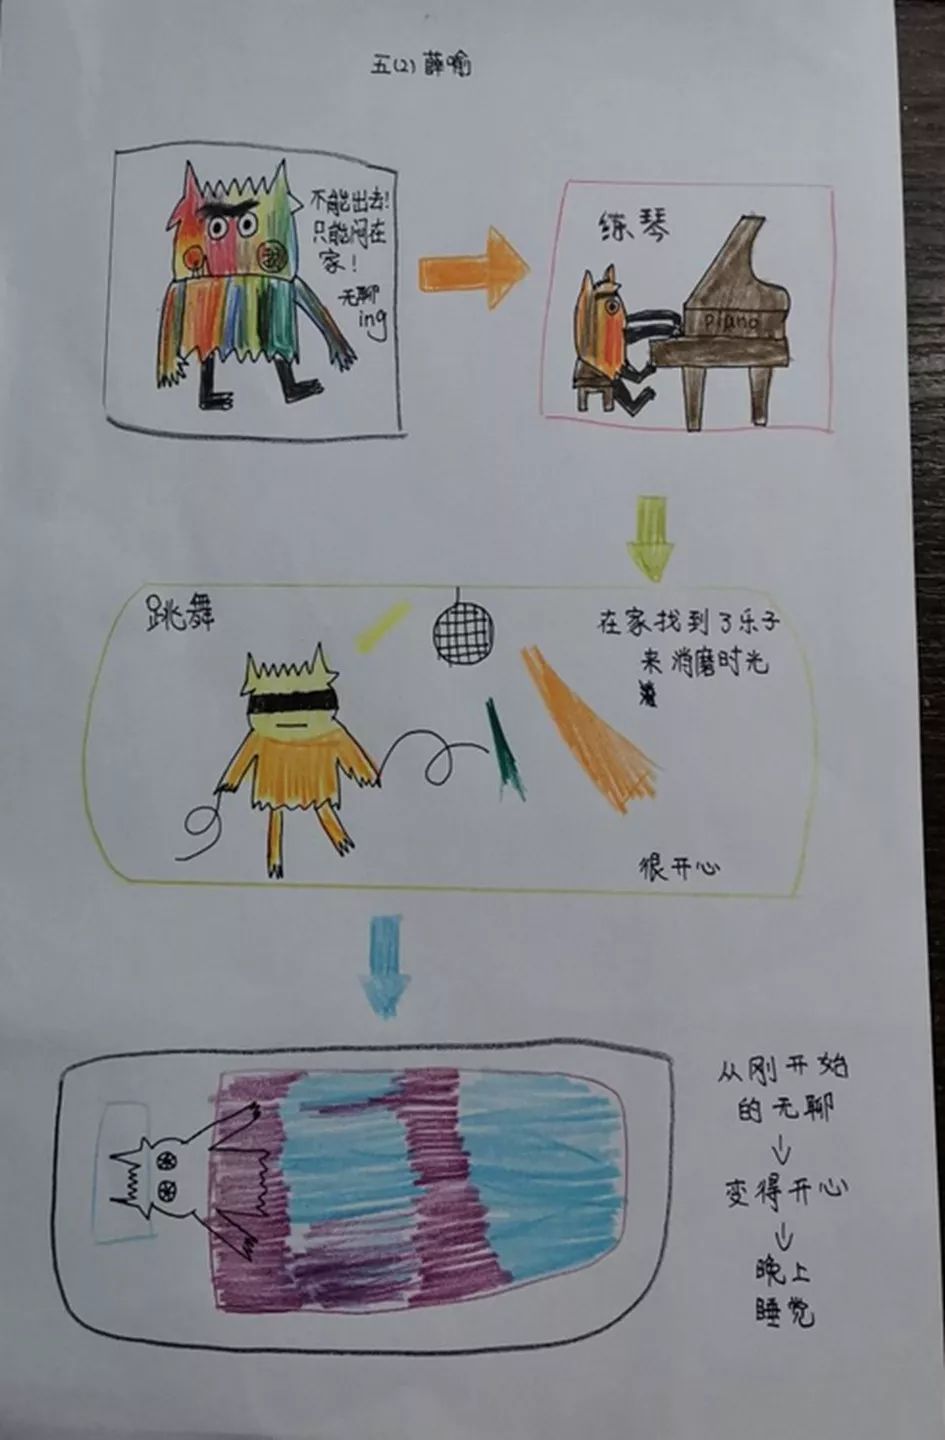 五(2) 薛喻
不能出去!
只能闷在
家!
无聊
ing
我
练琴
piano
跳舞
在家找到了乐子
来消磨时光
很开心
从刚开始
的无聊
↓
变得开心
↓
晚上
睡觉